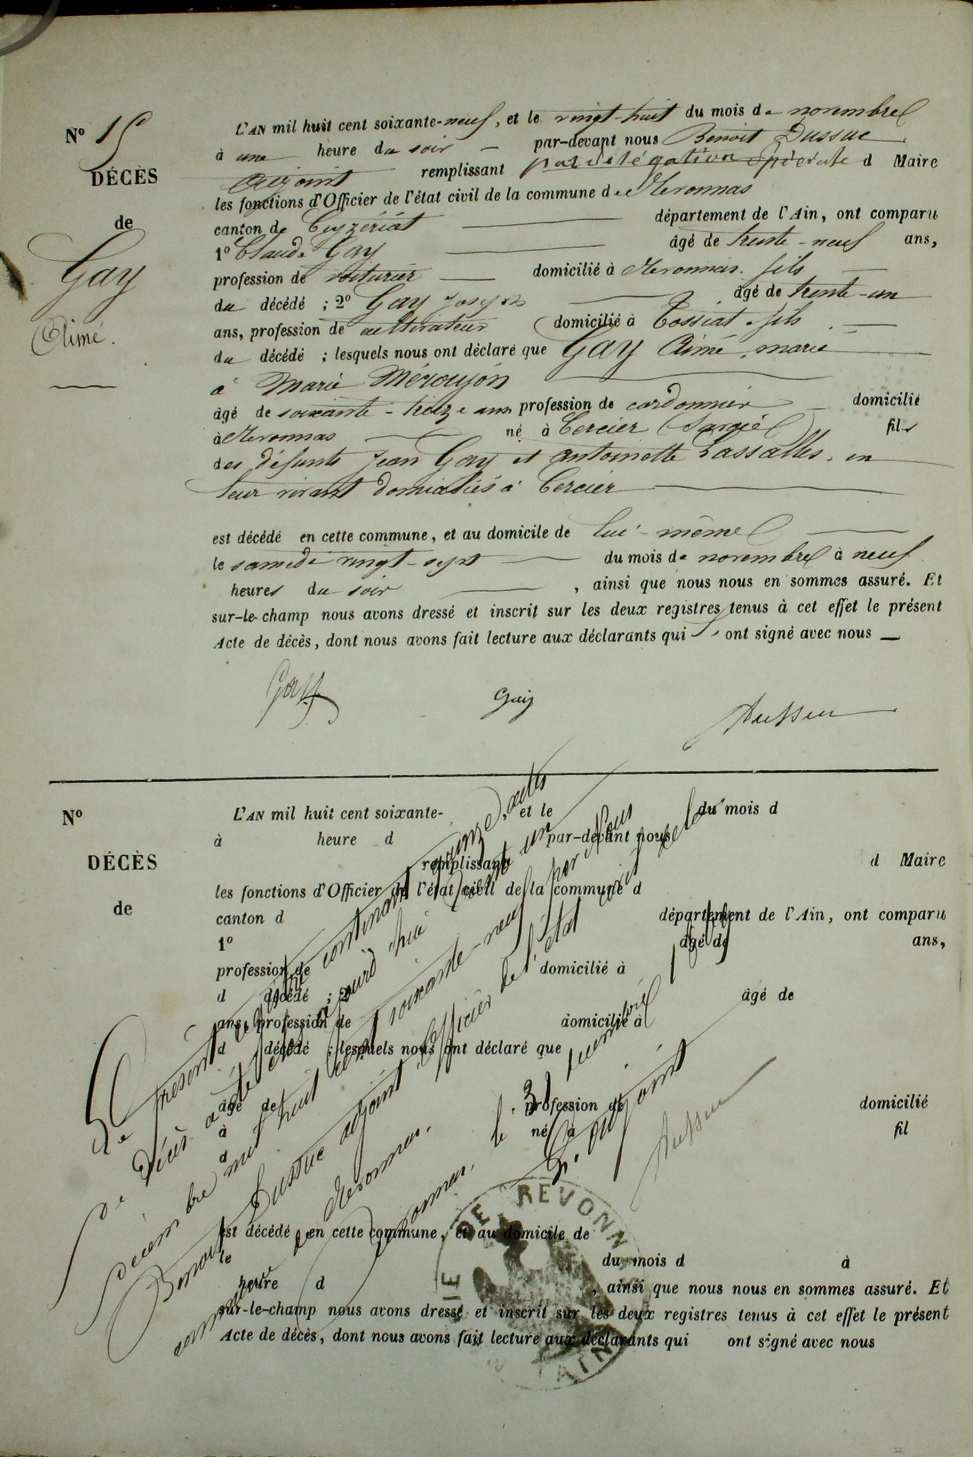 N° 15
DÉCÈS
de
Gay
Aimé.
L'AN mil huit cent soixante-neuf, et le vingt-huit du mois de novembre
à une heure du soir par-devant nous Benoit Dussuc
adjoint remplissant par délégation spéciale d Maire
les fonctions d'Officier de l'état civil de la commune de Revonnas
canton de Ceyzériat département de l'Ain, ont comparu
1° Claude Gay âgé de trente-neuf ans,
profession de voiturier domicilié à Revonnas. fils
du décédé ; 2° Gay Joseph âgé de trente-un
ans, profession de cultivateur domicilié à Tossiat. fils
du décédé ; lesquels nous ont déclaré que Gay Aimé, marié
à Marie
âgé de soixante-treize ans profession de cordonnier domicilié
à Revonnas né à Cercier (Savoie) fils
des défunts Jean Gay et Antoinette Lassalles, en
leur vivant domiciliés à Cercier
est décédé en cette commune, et au domicile de lui-même
le samedi vingt-sept du mois de novembre à neuf
heures du soir , ainsi que nous nous en sommes assuré. Et
sur-le-champ nous avons dressé et inscrit sur les deux registres tenus à cet effet le présent
Acte de décès, dont nous avons fait lecture aux déclarants qui l'ont signé avec nous
Gay Gay Dussuc
N°
DÉCÈS
de
L'AN mil huit cent soixante- , et le du mois d
à heure d par-devant nous
remplissant d Maire
les fonctions d'Officier de l'état civil de la commune d
canton d département de l'Ain, ont comparu
1° âgé de ans,
profession de domicilié à
d décédé ; 2° âgé de
ans, profession de domicilié à
d décédé ; lesquels nous ont déclaré que
âgé de profession de domicilié
à né à fil
d
est décédé en cette commune, et au domicile de
le du mois d à
heure d , ainsi que nous nous en sommes assuré. Et
sur-le-champ nous avons dressé et inscrit sur les deux registres tenus à cet effet le présent
Acte de décès, dont nous avons fait lecture aux déclarants qui ont signé avec nous
Le présent registre contenant quinze actes
de décès a été clos aujourd'hui trente un
décembre mil huit cent soixante-neuf par Nous
Benoit Dussuc adjoint officier de l'état civil de la
commune de Revonnas.
Revonnas, le 31 décembre 1869
L'adjoint
Dussuc
MAIRIE DE REVONNAS
AIN